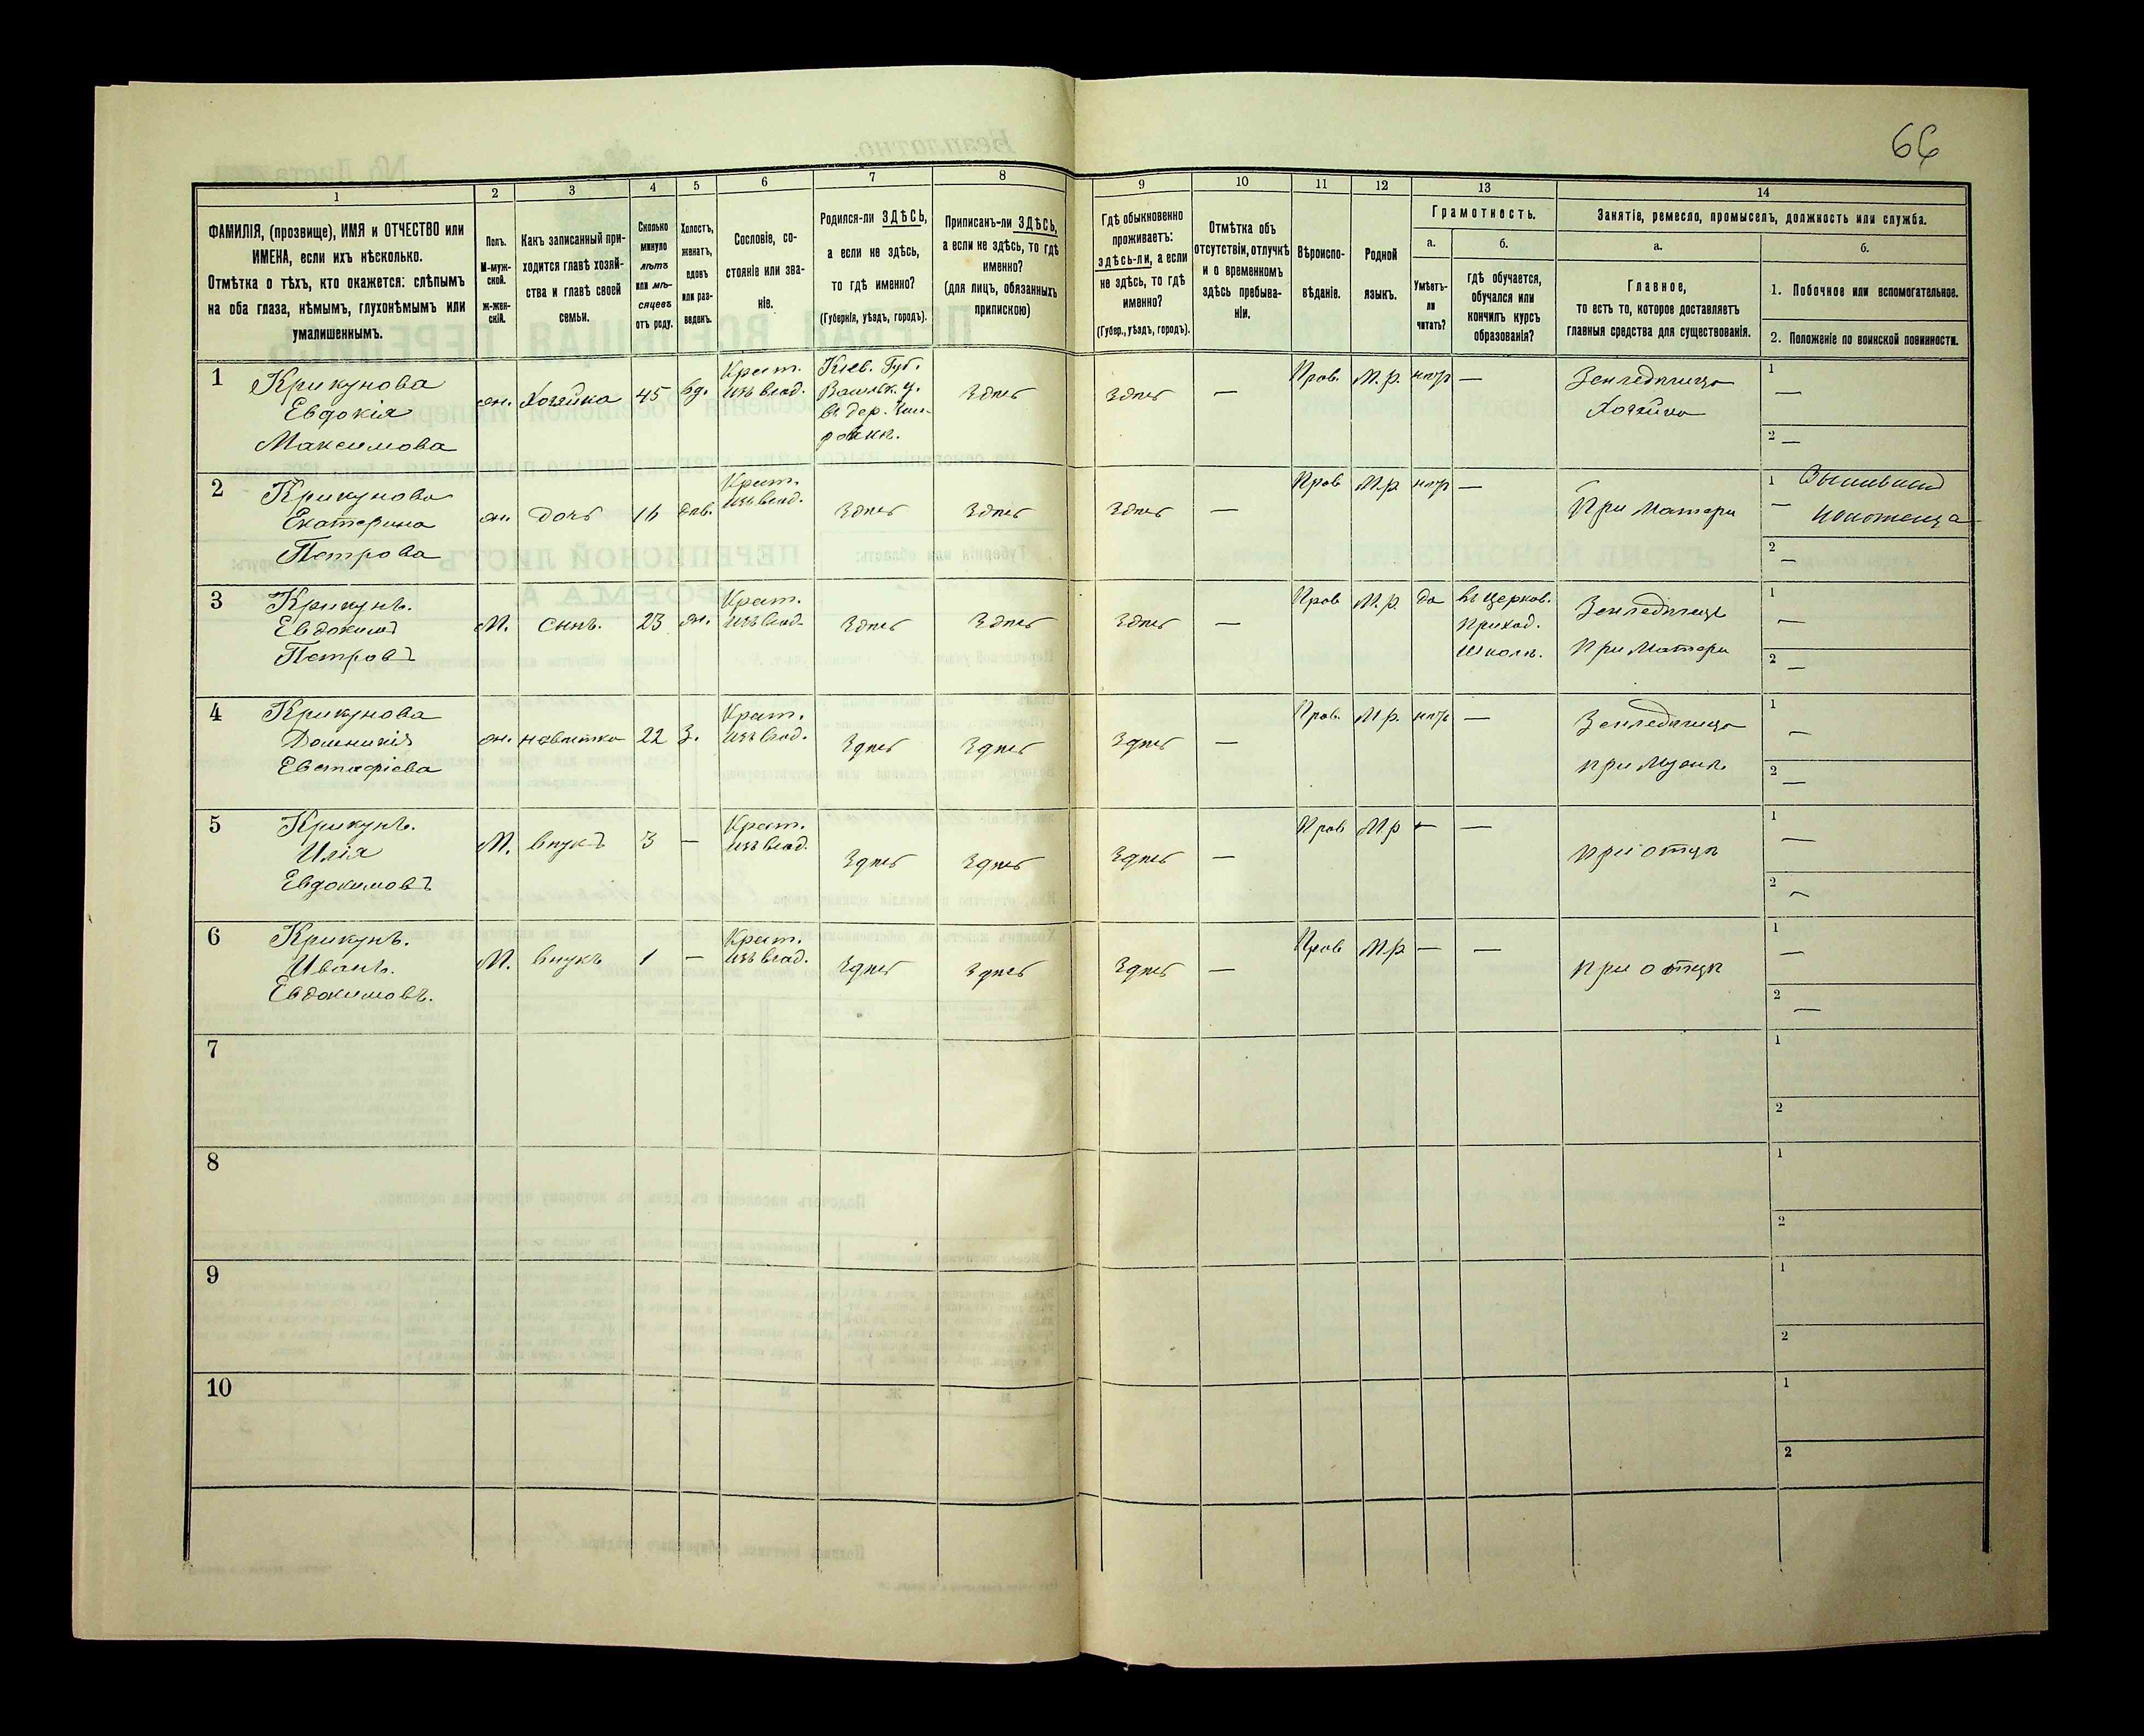 66
1
2
3
4
5
6
7
8
9
10
11
12
13
14
ФАМИЛІЯ, (прозвище), ИМЯ и ОТЧЕСТВО или
ИМЕНА, если ихъ нѣсколько.
Отмѣтка о тѣхъ, кто окажется: слѣпымъ
на оба глаза, нѣмымъ, глухонѣмымъ или
умалишеннымъ.
Полъ.
М-муж-
ской.
ж-жен-
скій.
Какъ записанный при-
ходится главѣ хозяй-
ства и главѣ своей
семьи.
Сколько
минуло
лѣтъ
или мѣ-
сяцевъ
отъ роду.
Холостъ,
женатъ,
вдовъ
или раз-
веденъ.
Сословіе, со-
стояніе или зва-
ніе.
Родился-ли ЗДѢСЬ,
а если не здѣсь,
то гдѣ именно?
(Губернія, уѣздъ, городъ).
Приписанъ-ли ЗДѢСЬ,
а если не здѣсь, то гдѣ
именно?
(для лицъ, обязанныхъ
припискою)
Гдѣ обыкновенно
проживаетъ:
здѣсь-ли, а если
не здѣсь, то гдѣ
именно?
(Губер., уѣздъ, городъ).
Отмѣтка объ
отсутствіи, отлучкѣ
и о временномъ
здѣсь пребыва-
ніи.
Вѣроиспо-
вѣданіе.
Родной
языкъ.
Грамотность.
а.
Умѣетъ-
ли
читать?
б.
гдѣ обучается,
обучался или
кончилъ курсъ
образованія?
Занятіе, ремесло, промыселъ, должность или служба.
а.
Главное,
то есть то, которое доставляетъ
главныя средства для существованія.
б.
1. Побочное или вспомогательное.
2. Положеніе по воинской повинности.
1
Крикунова
Евдокія
Максимова
жн.
Хозяйка
45
вд.
Крест.
изъ влад.
Кіев. Губ.
Васильк. у.
въ дер.
Здѣсь
Здѣсь
—
Прав.
М.р.
нѣтъ
—
Земледѣлица
Хозяйка
1
—
2 —
2
Крикунова
Екатерина
Петрова
жн.
дочь
16
дѣв.
Крест.
изъ влад.
Здѣсь
Здѣсь
Здѣсь
—
Прав
М.р
нѣтъ
—
При Матери
1
—
2
—
3
Крикунъ.
Евдокимъ
Петровъ
М.
сынъ.
23
жн.
Крест.
изъ влад.
Здѣсь
Здѣсь
Здѣсь
—
Прав
М.р.
да
въ церков.
приход.
школѣ.
Земледѣлецъ
при Матери
1
—
2 —
4
Крикунова
Домникія
Евстафіева
жн.
невѣстка
22
З.
Крест.
изъ влад.
Здѣсь
Здѣсь
Здѣсь
—
Прав.
М.р.
нѣтъ
—
Земледѣлица
при Мужѣ
1
—
2
—
5
Крикунъ.
Илія
Евдокимовъ
М.
внукъ
3
—
Крест.
изъ влад.
Здѣсь
Здѣсь
Здѣсь
—
Прав
М.р
—
—
при отцѣ
1
—
2
—
6
Крикунъ.
Иванъ.
Евдокимовъ.
М.
внукъ
1
—
Крест.
изъ влад.
Здѣсь
Здѣсь
Здѣсь
—
Прав
М.р
—
—
при отцѣ
1
—
2
—
7
1
2
8
1
2
9
1
2
10
1
2